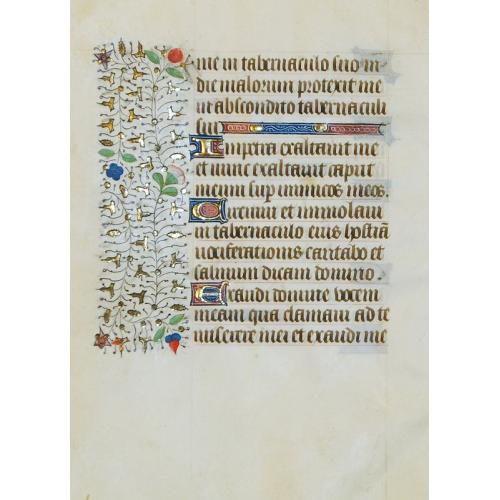 me in tabernaculo suo in
die malorum protexit me
in abscondito tabernaculi
sui
In petra exaltavit me
et nunc exaltavit caput
meum sup inimicos meos.
Circuivi et immolavi
in tabernaculo eius hostiam
vociferationis cantabo et
psalmum dicam domino.
Exaudi domine vocem
meam qua clamavi ad te
miserere mei et exaudi me